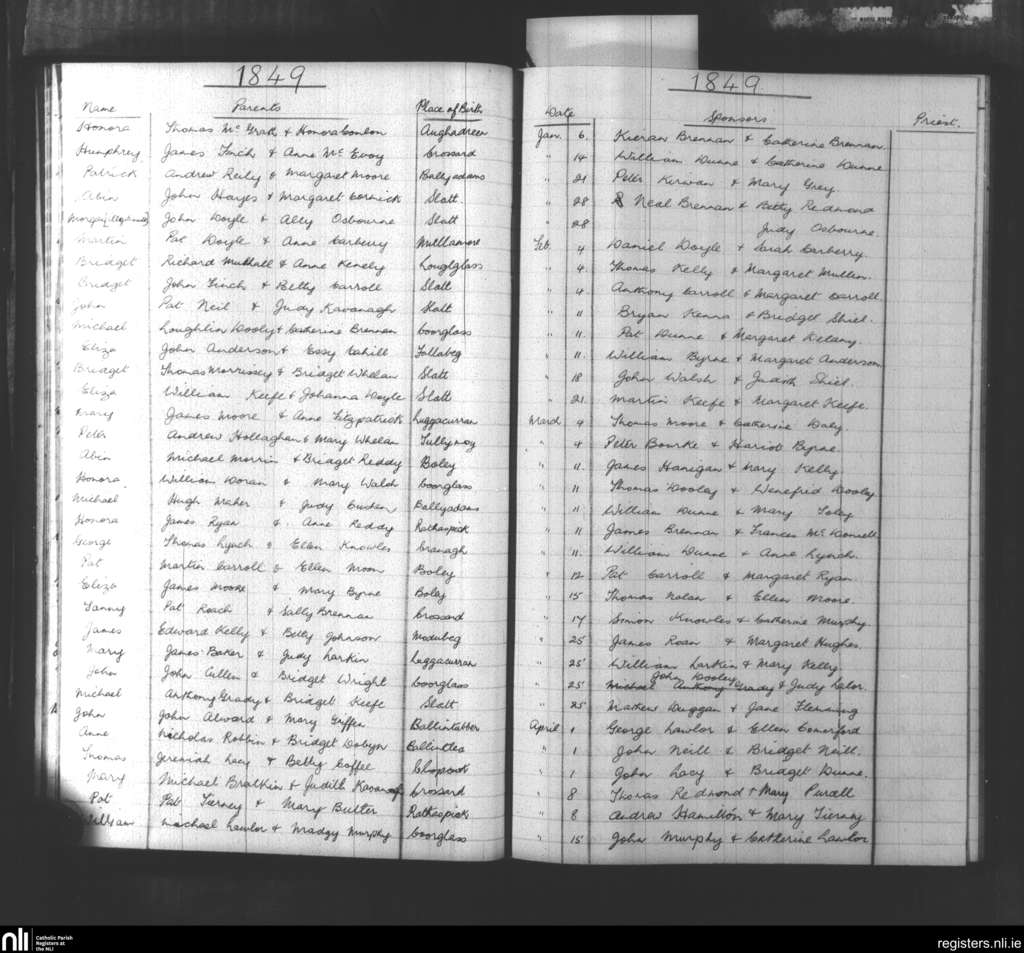 1849
Name Parents Place of Birth
Honora Thomas Mc Grath & Honora Conlon Aughadreen
Humphrey James Finch & Anne Mc Evoy Crossard
Patrick Andrew Reily & Margaret Moore Ballyadams
Abin John Hayes & Margaret Cornick Slatt
John Doyle & Ally Osbourne Slatt
Martin Pat Doyle & Anne Carberry Mullamore
Bridget Richard Mulhall & Anne Kenely Louglglass
Bridget John Finch & Betty Carroll Slatt
John Pat Neil & Judy Kavanagh Slatt
Michael Loughlin Dooly & Catherine Brennan Coorglass
Eliza John Anderson & Essy Cahill Tollabeg
Bridget Thomas Morrissey & Bridget Whelan Slatt
Eliza William Keefe & Johanna Doyle Slatt
Mary James Moore & Anne Fitzpatrick Luggacurran
Peter Andrew Hollaghan & Mary Whelan Tullymoy
Abin Michael Morrin & Bridget Reddy Boley
Honora William Doran & Mary Walsh Coorglass
Michael Hugh Maher & Judy Ballyadams
Honora James Ryan & Anne Reddy Rathaspick
George Thomas Lynch & Ellen Knowles Cranagh
Pat Martin Carroll & Ellen Moon Booley
Eliza James Moore & Mary Byrne Boley
Fanny Pat Roach & Sally Brennan Crossard
James Edward Kelly & Betty Johnson Modubeg
Mary James Baker & Judy Larkin Luggacurran
John John Cullen & Bridget Wright Coorglass
Michael Anthony Grady & Bridget Keefe Slatt
John John Alward & Mary Griffin Ballintubber
Anne Nicholas Robbin & Bridget Dobyn Ballintlea
Thomas Jeremiah Lacy & Betty Coffee
Mary Michael Bratkin & Judith Kavanagh Crossard
Pat Pat Tierney & Mary Butler Rathaspick
William Michael Lawlor & Madgy Murphy Coorglass
1849
Date Sponsors Priest.
Jan. 6. Kieran Brennan & Catherine Brennan.
" 14 William Dunne & Catherine Dunne
" 21 Peter Kirwan & Mary Grey.
" 28 Neal Brennan & Betty Redmond
" 28 Judy Osbourne.
Feb. 4 Daniel Doyle & Sarah Carberry.
" 4. Thomas Kelly & Margaret Mullin.
" 4 Anthony Carroll & Margaret Carroll.
" 11 Bryan Kenna & Bridget Shiel.
" 11. Pat Dunne & Margaret Delany.
" 11. William Byrne & Margaret Anderson
" 18 John Walsh & Judith Shiel.
" 21 Martin Keefe & Margaret Keefe.
March 4 Thomas Moore & Catherine Daly.
" 4 Peter Bourke & Hariot Byrne.
" 11. James Hanigan & Mary Kelly.
" 11 Thomas Dooley & Winefrid Dooley
" 11 William Dunne & Mary Foley
" 11 James Brennan & Frances Mc Donnell
" 11. William Dunne & Anne Lynch.
" 12 Pat Carroll & Margaret Ryan
" 15 Thomas Nolan & Ellen Moore.
" 17 Simon Knowles & Catherine Murphy.
" 25 James Roan & Margaret Hughes.
" 25 William Larkin & Mary Kelly.
John Dooley
" 25 Michael Anthony Grady & Judy Lalor.
" 25 Mathew Duggan & Jane Flemming
April 1 George Lawlor & Ellen Comerford
" 1 John Neill & Bridget Neill.
" 1 John Lacy & Bridget Dunne.
" 8 Thomas Redmond & Mary Purcell
" 8 Andrew Hamilton & Mary Tierney
" 15 John Murphy & Catherine Lawlor
nli Catholic Parish
Registers at
the NLI
registers.nli.ie